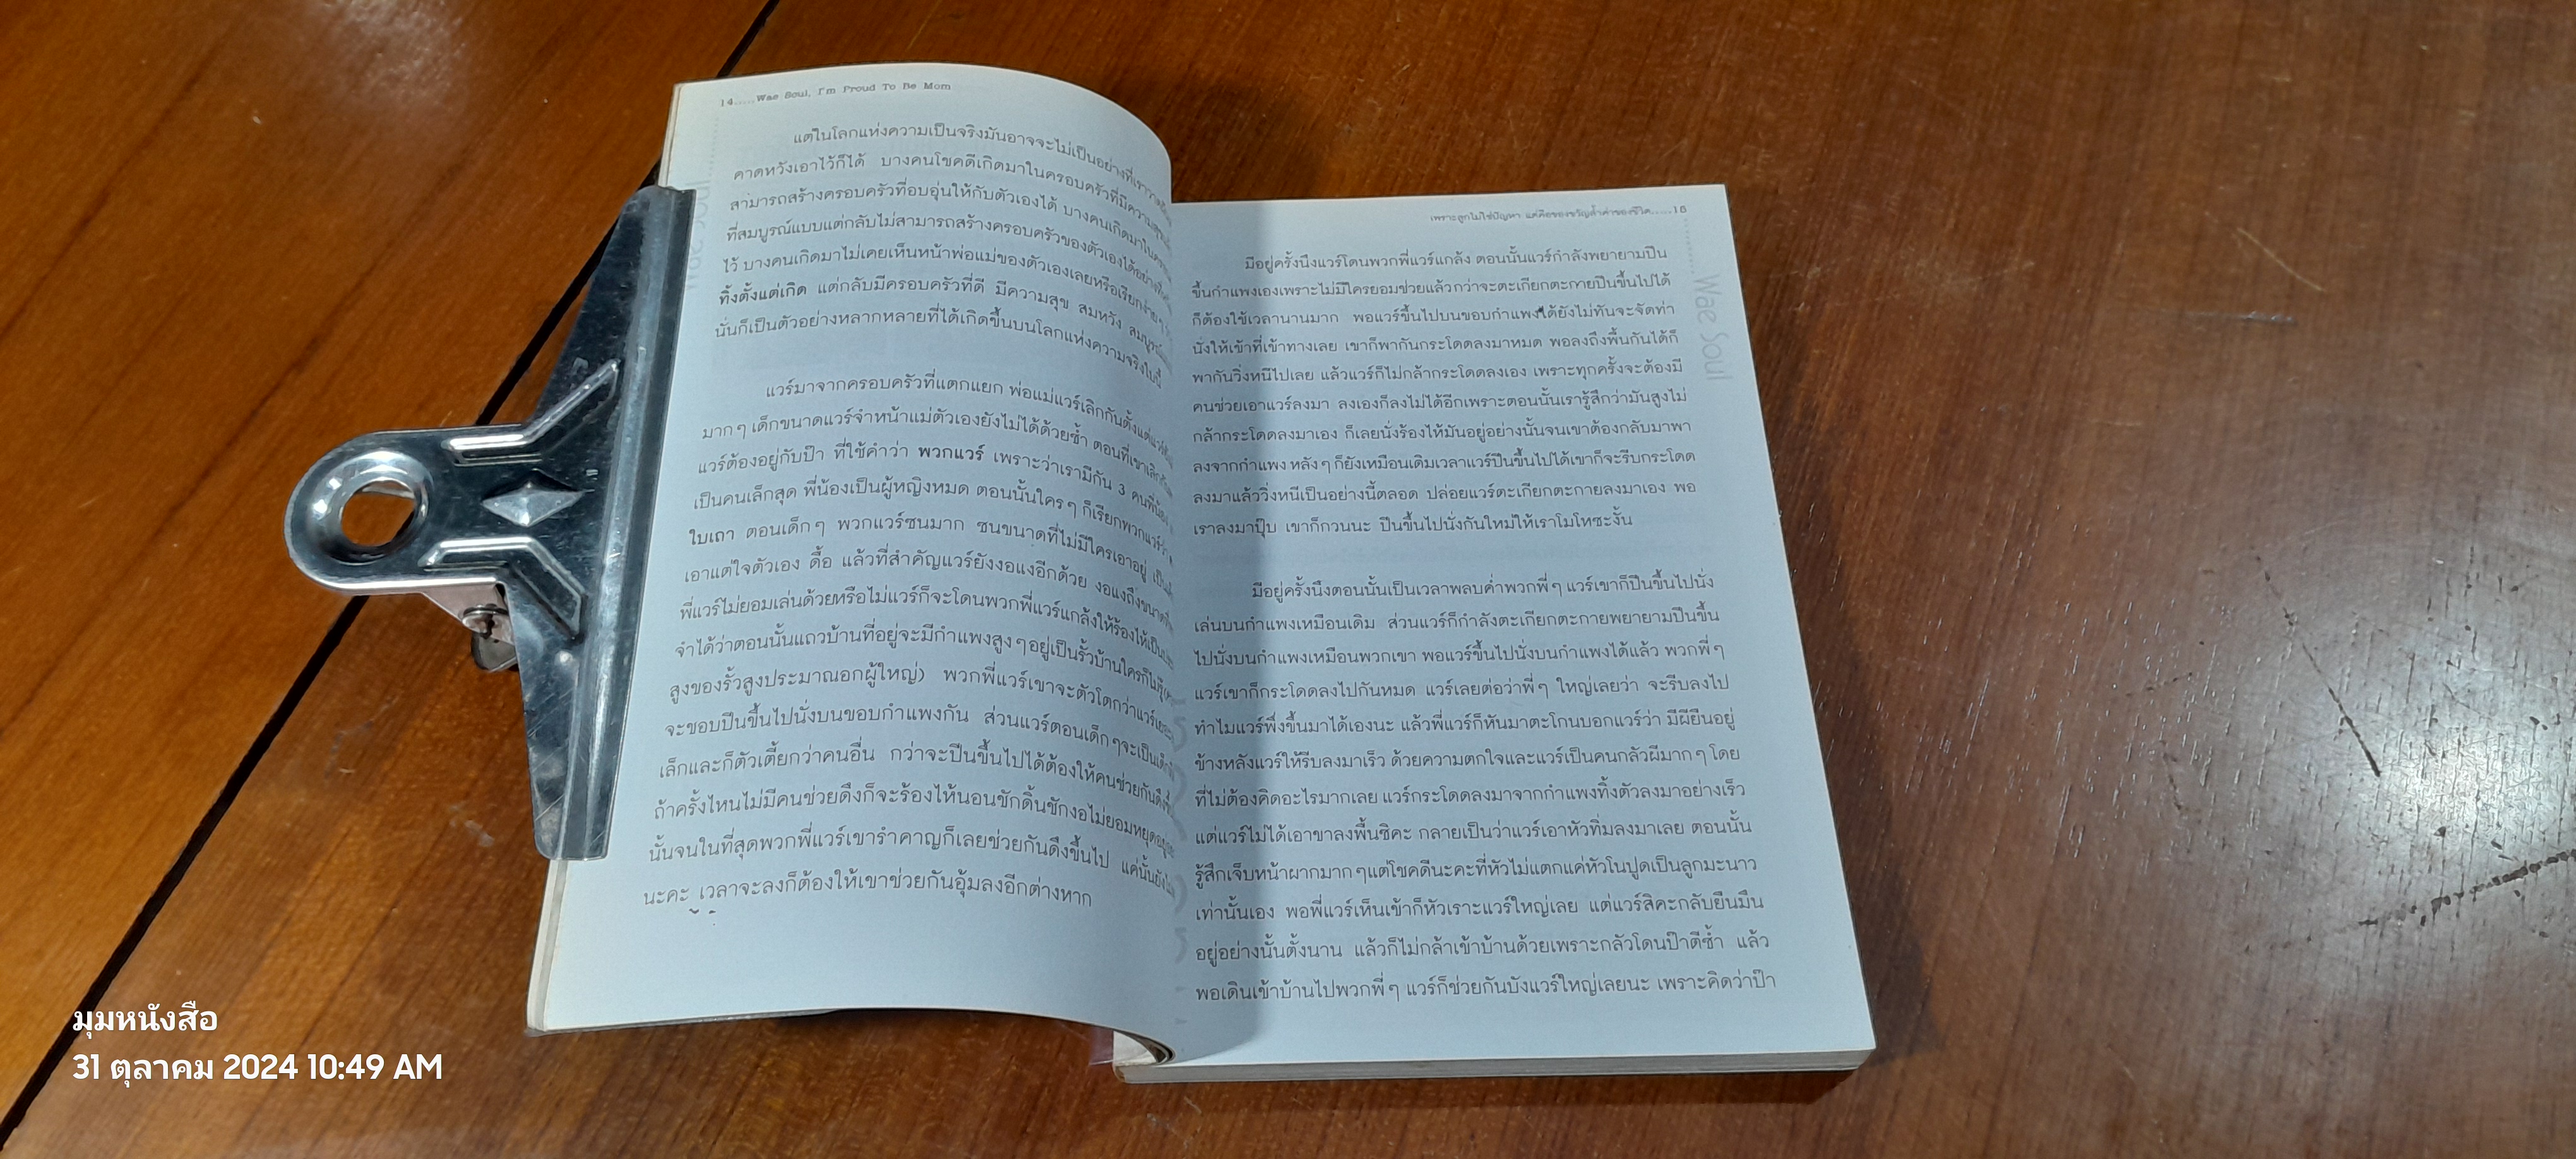 14.....Wae Soul, I'm Proud To Be Mom
แต่ในโลกแห่งความเป็นจริงมันอาจจะไม่เป็นอย่างที่เรา
คาดหวังเอาไว้ก็ได้ บางคนโชคดีเกิดมาในครอบครัวที่มีความ
สามารถสร้างครอบครัวที่อบอุ่นให้กับตัวเองได้ บางคนเกิดมาใน
ที่สมบูรณ์แบบแต่กลับไม่สามารถสร้างครอบครัวของตัวเองได้อย่าง
ไว้ บางคนเกิดมาไม่เคยเห็นหน้าพ่อแม่ของตัวเองเลยหรือเรียกง่ายๆ
ทิ้งตั้งแต่เกิด แต่กลับมีครอบครัวที่ดี มีความสุข สมหวัง
นั่นก็เป็นตัวอย่างหลากหลายที่ได้เกิดขึ้นบนโลกแห่งความจริงใบนี้
แวร์มาจากครอบครัวที่แตกแยก พ่อแม่แวร์เลิกกันตั้งแต่แวร์
มากๆ เด็กขนาดแวร์จำหน้าแม่ตัวเองยังไม่ได้ด้วยซ้ำ ตอนที่เขาเลิกกัน
แวร์ต้องอยู่กับป๊า ที่ใช้คำว่า พวกแวร์ เพราะว่าเรามีกัน 3 คนพี่น้อง
เป็นคนเล็กสุด พี่น้องเป็นผู้หญิงหมด ตอนนั้นใครๆ ก็เรียกพวกแวร์ว่า
ใบเถา ตอนเด็กๆ พวกแวร์ซนมาก ซนขนาดที่ไม่มีใครเอาอยู่
เอาแต่ใจตัวเอง ดื้อ แล้วที่สำคัญแวร์ยังงอแงอีกด้วย งอแงถึงขนาดที่
พี่แวร์ไม่ยอมเล่นด้วยหรือไม่แวร์ก็จะโดนพวกพี่แวร์แกล้งให้ร้องไห้เป็น
จำได้ว่าตอนนั้นแถวบ้านที่อยู่จะมีกำแพงสูงๆ อยู่เป็นรั้วบ้านใครก็ไม่รู้
สูงของรั้วสูงประมาณอกผู้ใหญ่) พวกพี่แวร์เขาจะตัวโตกว่าแวร์
จะชอบปีนขึ้นไปนั่งบนขอบกำแพงกัน ส่วนแวร์ตอนเด็กๆจะเป็น
เล็กและก็ตัวเตี้ยกว่าคนอื่น กว่าจะปีนขึ้นไปได้ต้องให้คนช่วยกันดึง
ถ้าครั้งไหนไม่มีคนช่วยดึงก็จะร้องไห้นอนชักดิ้นชักงอไม่ยอมหยุด
นั้นจนในที่สุดพวกพี่แวร์เขารำคาญก็เลยช่วยกันดึงขึ้นไป แค่นั้นยัง
นะคะ เวลาจะลงก็ต้องให้เขาช่วยกันอุ้มลงอีกต่างหาก
เพราะลูกไม่ใช่ปัญหา แต่คือของขวัญล้ำค่าของชีวิต.....15
มีอยู่ครั้งนึงแวร์โดนพวกพี่แวร์แกล้ง ตอนนั้นแวร์กำลังพยายามปีน
ขึ้นกำแพงเองเพราะไม่มีใครยอมช่วยแล้วกว่าจะตะเกียกตะกายปีนขึ้นไปได้
ก็ต้องใช้เวลานานมาก พอแวร์ขึ้นไปบนขอบกำแพงได้ยังไม่ทันจะจัดท่า
นั่งให้เข้าที่เข้าทางเลย เขาก็พากันกระโดดลงมาหมด พอลงถึงพื้นกันได้ก็
พากันวิ่งหนีไปเลย แล้วแวร์ก็ไม่กล้ากระโดดลงเอง เพราะทุกครั้งจะต้องมี
คนช่วยเอาแวร์ลงมา ลงเองก็ลงไม่ได้อีกเพราะตอนนั้นเรารู้สึกว่ามันสูงไม่
กล้ากระโดดลงมาเอง ก็เลยนั่งร้องไห้มันอยู่อย่างนั้นจนเขาต้องกลับมาพา
ลงจากกำแพง หลังๆ ก็ยังเหมือนเดิมเวลาแวร์ปีนขึ้นไปได้เขาก็จะรีบกระโดด
ลงมาแล้ววิ่งหนีเป็นอย่างนี้ตลอด ปล่อยแวร์ตะเกียกตะกายลงมาเอง พอ
เราลงมาปุ๊บ เขาก็กวนนะ ปีนขึ้นไปนั่งกันใหม่ให้เราโมโหซะงั้น
Wae Soul
มีอยู่ครั้งนึงตอนนั้นเป็นเวลาพลบค่ำพวกพี่ๆ แวร์เขาก็ปีนขึ้นไปนั่ง
เล่นบนกำแพงเหมือนเดิม ส่วนแวร์ก็กำลังตะเกียกตะกายพยายามปีนขึ้น
ไปนั่งบนกำแพงเหมือนพวกเขา พอแวร์ขึ้นไปนั่งบนกำแพงได้แล้ว พวกพี่ๆ
แวร์เขาก็กระโดดลงไปกันหมด แวร์เลยต่อว่าพี่ๆ ใหญ่เลยว่า จะรีบลงไป
ทำไมแวร์พึ่งขึ้นมาได้เองนะ แล้วพี่แวร์ก็หันมาตะโกนบอกแวร์ว่า มีผียืนอยู่
ข้างหลังแวร์ให้รีบลงมาเร็ว ด้วยความตกใจและแวร์เป็นคนกลัวผีมากๆ โดย
ที่ไม่ต้องคิดอะไรมากเลย แวร์กระโดดลงมาจากกำแพงทิ้งตัวลงมาอย่างเร็ว
แต่แวร์ไม่ได้เอาขาลงพื้นซิคะ กลายเป็นว่าแวร์เอาหัวทิ่มลงมาเลย ตอนนั้น
รู้สึกเจ็บหน้าผากมากๆแต่โชคดีนะคะที่หัวไม่แตกแค่หัวโนปูดเป็นลูกมะนาว
เท่านั้นเอง พอพี่แวร์เห็นเข้าก็หัวเราะแวร์ใหญ่เลย แต่แวร์สิคะกลับยืนมึน
อยู่อย่างนั้นตั้งนาน แล้วก็ไม่กล้าเข้าบ้านด้วยเพราะกลัวโดนป๊าตีซ้ำ แล้ว
พอเดินเข้าบ้านไปพวกพี่ๆ แวร์ก็ช่วยกันบังแวร์ใหญ่เลยนะ เพราะคิดว่าป๊า
มุมหนังสือ
31 ตุลาคม 2024 10:49 AM